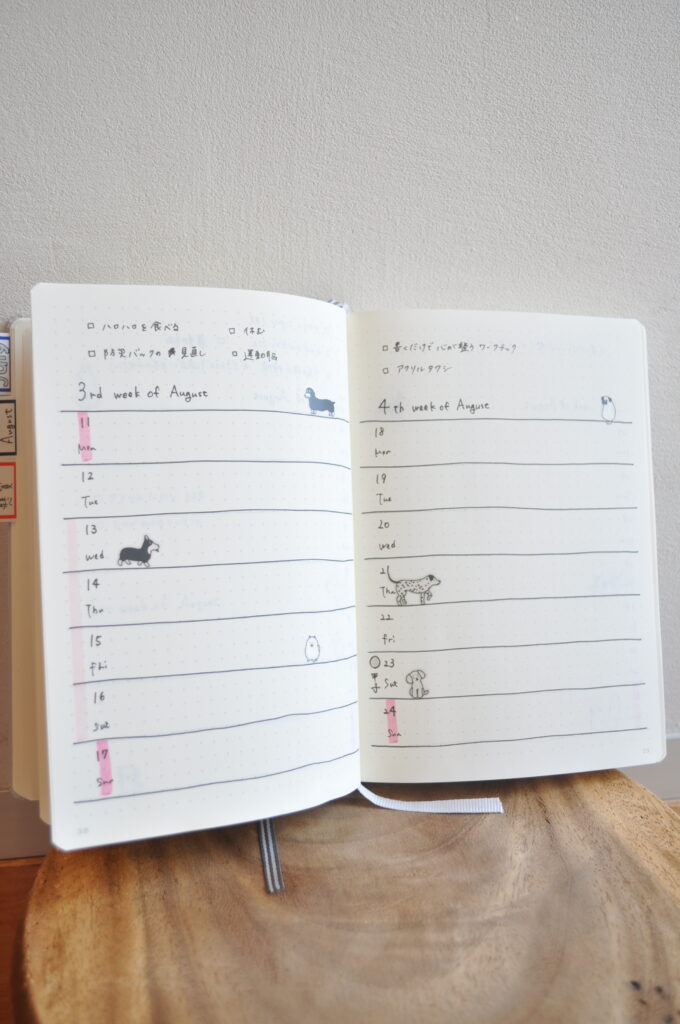 □ ハロハロを食べる □ 休む
□ 防災バックの見直し □ 運動
3rd week of August
11
Mon
12
Tue
13
wed
14
Thu
15
fri
16
Sat
17
Sun
□ 書くだけで心が整う ワークチック
□ アクリルタワシ
4th week of August
18
Mon
19
Tue
20
wed
21
Thu
22
fri
23
Sat
24
Sun
August